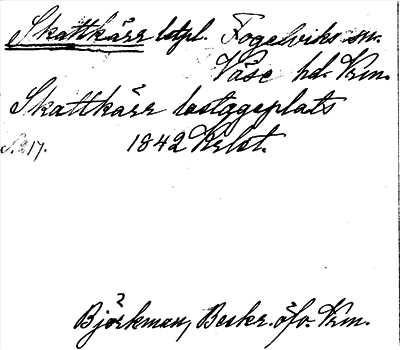 Skattkärr lstpl. Fogelviks sn.
Väse hd. Vrm.
Skattkärr lastageplats
S. 217. 1842 Krlst.
Björkman, Beskr. öfv. Vrm.